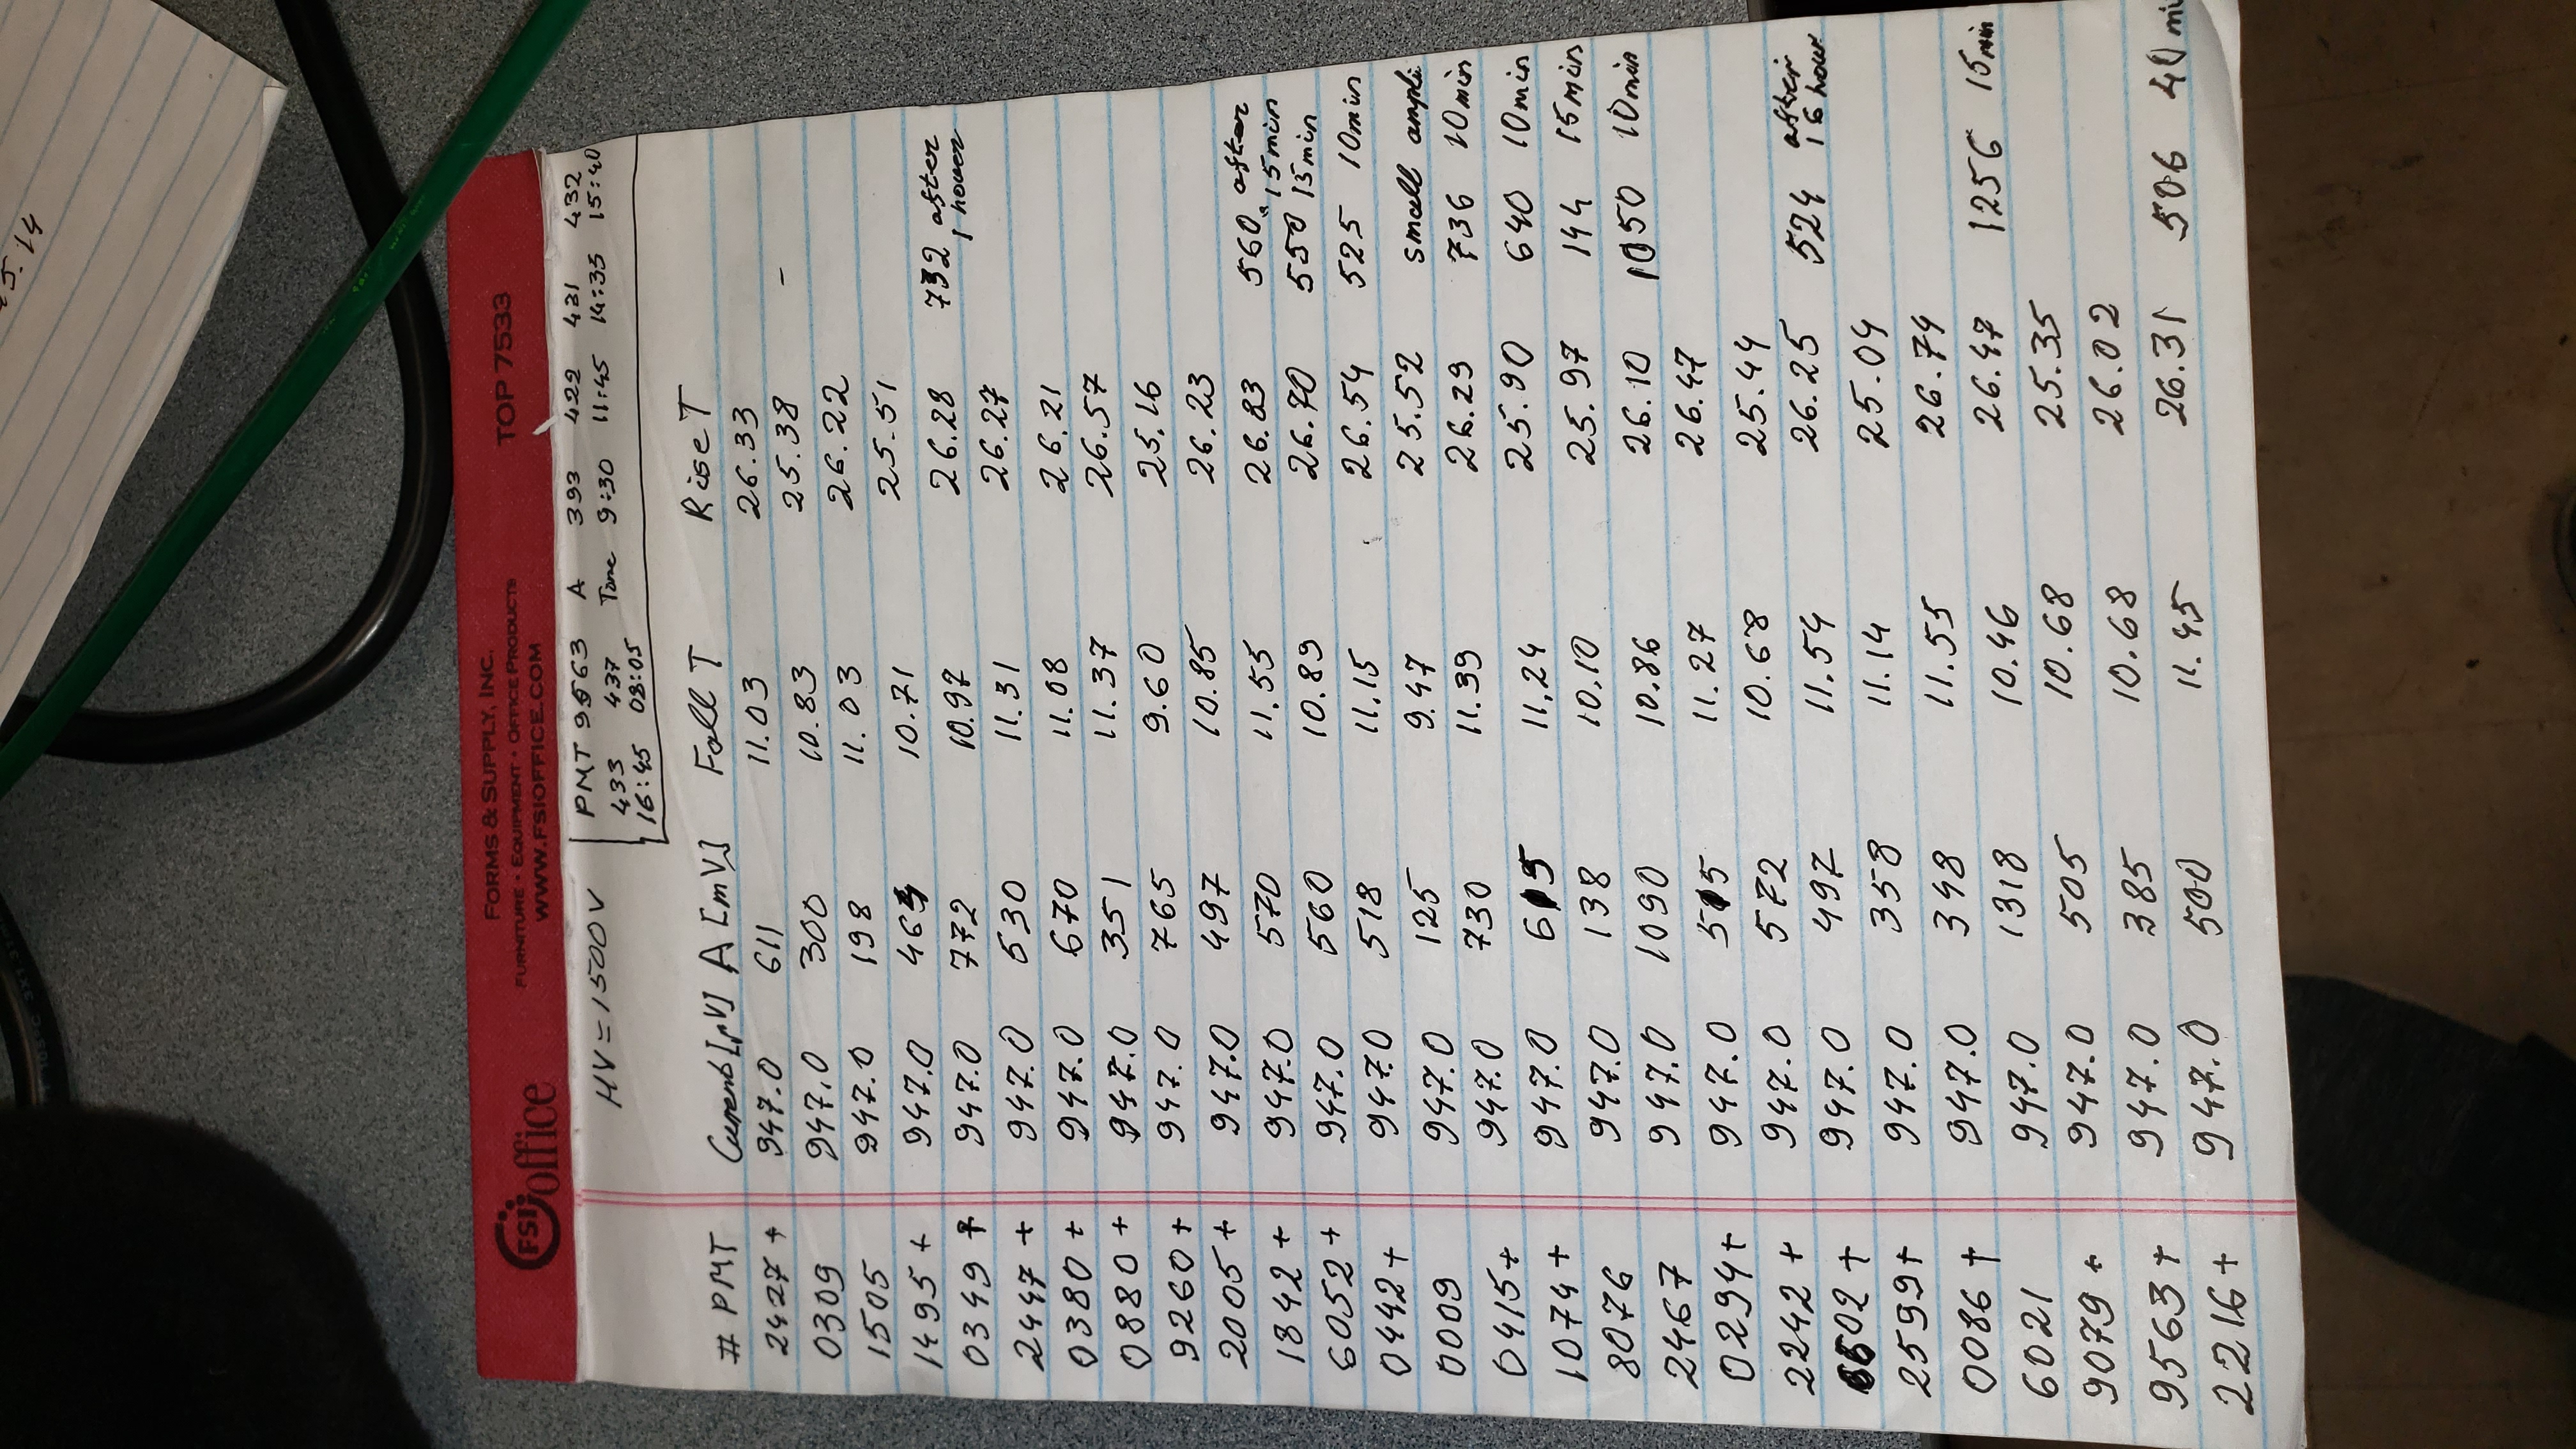 FSI office
FORMS & SUPPLY, INC.
FURNITURE • EQUIPMENT • OFFICE PRODUCTS
WWW.FSIOFFICE.COM
TOP 7533
HV = 1500V
PMT 9563 A 393 422 431 432
433 437 Time 9:30 11:45 14:35 15:40
16:45 08:05
# PMT Current [μV] A [mV] Fall T Rise T
2427 + 947.0 611 11.03 26.33
0309 947.0 300 10.83 25.38 -
1505 947.0 198 11.03 26.22
1495 + 947.0 464 10.71 25.51
0349 + 947.0 772 10.97 26.28 732 after 1 houer
2447 + 947.0 530 11.31 26.27
0380 + 947.0 670 11.08 26.21
0880 + 947.0 351 11.37 26.57
9260 + 947.0 765 9.60 25.16
2005 + 947.0 497 10.85 26.23
1842 + 947.0 570 11.55 26.83 560 after 15 min
6052 + 947.0 560 10.89 26.70 550 15 min
0442 + 947.0 518 11.15 26.54 525 10 min
0009 947.0 125 9.47 25.52 small ampli
0415 + 947.0 730 11.39 26.29 736 10 min
1074 + 947.0 615 11.24 25.90 640 10 min
8076 947.0 138 10.10 25.97 144 15 min
2467 947.0 1090 10.86 26.10 1050 10 min
0294 + 947.0 515 11.27 26.47
2242 + 947.0 572 10.68 25.44
6502 + 947.0 497 11.54 26.25 524 after 16 hour
2599 + 947.0 358 11.14 25.04
0086 + 947.0 348 11.55 26.74
6021 947.0 1318 10.46 26.47 1256 15 min
9079 + 947.0 505 10.68 25.35
9563 + 947.0 385 10.68 26.02
2216 + 947.0 500 11.45 26.31 506 40 min